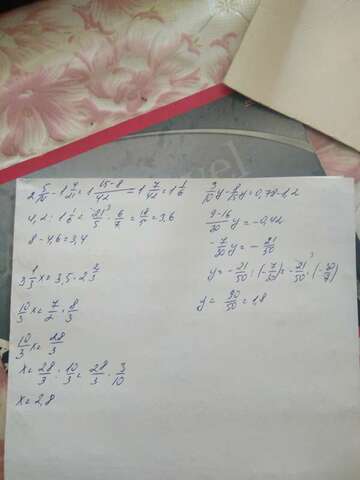 2 5/14 - 1 4/21 = 1 15-8/42 = 1 7/42 = 1 1/6
4,2 : 1 1/6 = 21/5 · 6/7 = 18/5 = 3,6
8 - 4,6 = 3,4
3 1/3 x = 3,5 · 2 2/3
10/3 x = 7/2 · 8/3
10/3 x = 28/3
x = 28/3 : 10/3 = 28/3 · 3/10
x = 2,8
3/10 y - 8/15 y = 0,78 - 1,2
9-16/30 y = -0,42
-7/30 y = -21/50
y = -21/50 : (-7/30) = -21/50 · (-30/7)
y = 90/50 = 1,8